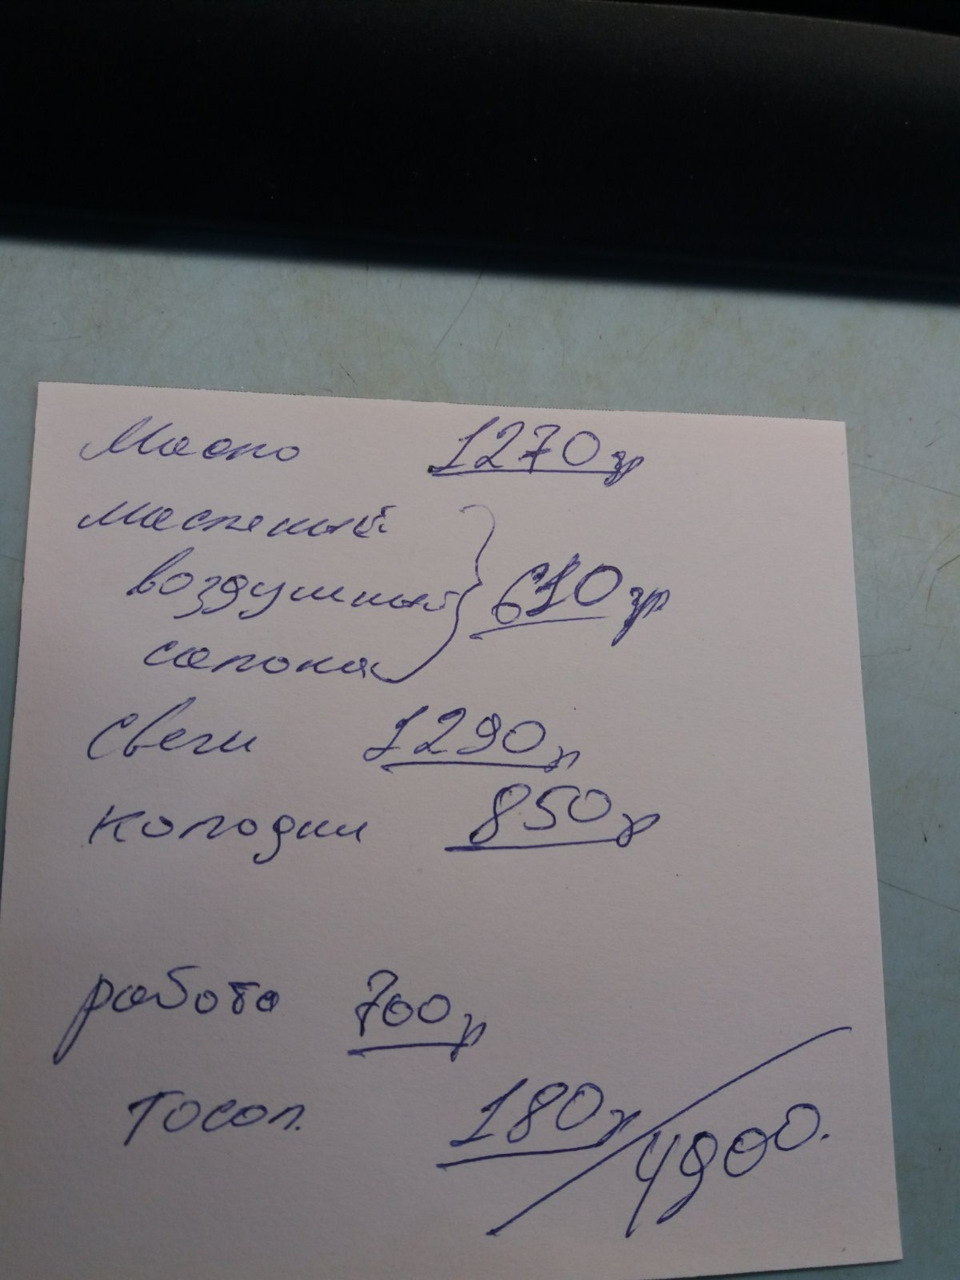 Масло 1270 гр
масленый
воздушный 610 гр
салона
Свечи 1290 г
колодки 850 г
работа 700 г
Тосол. 180 г
4900.